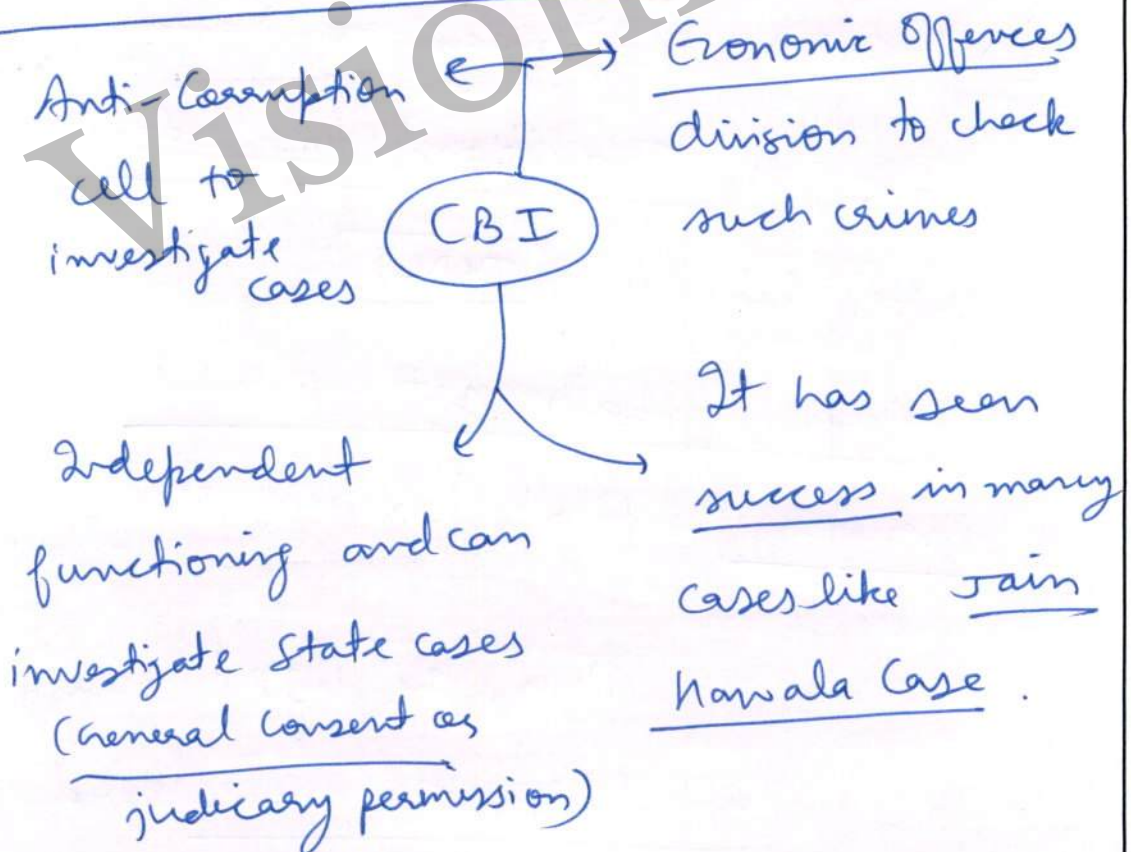 Vision
Anti-Corruption
cell to
investigate
cases
Economic Offences
division to check
such crimes
CBI
Independent
functioning and can
investigate State cases
(General Consent or
judicary permission)
It has seen
success in many
cases like Jain
hawala Case.